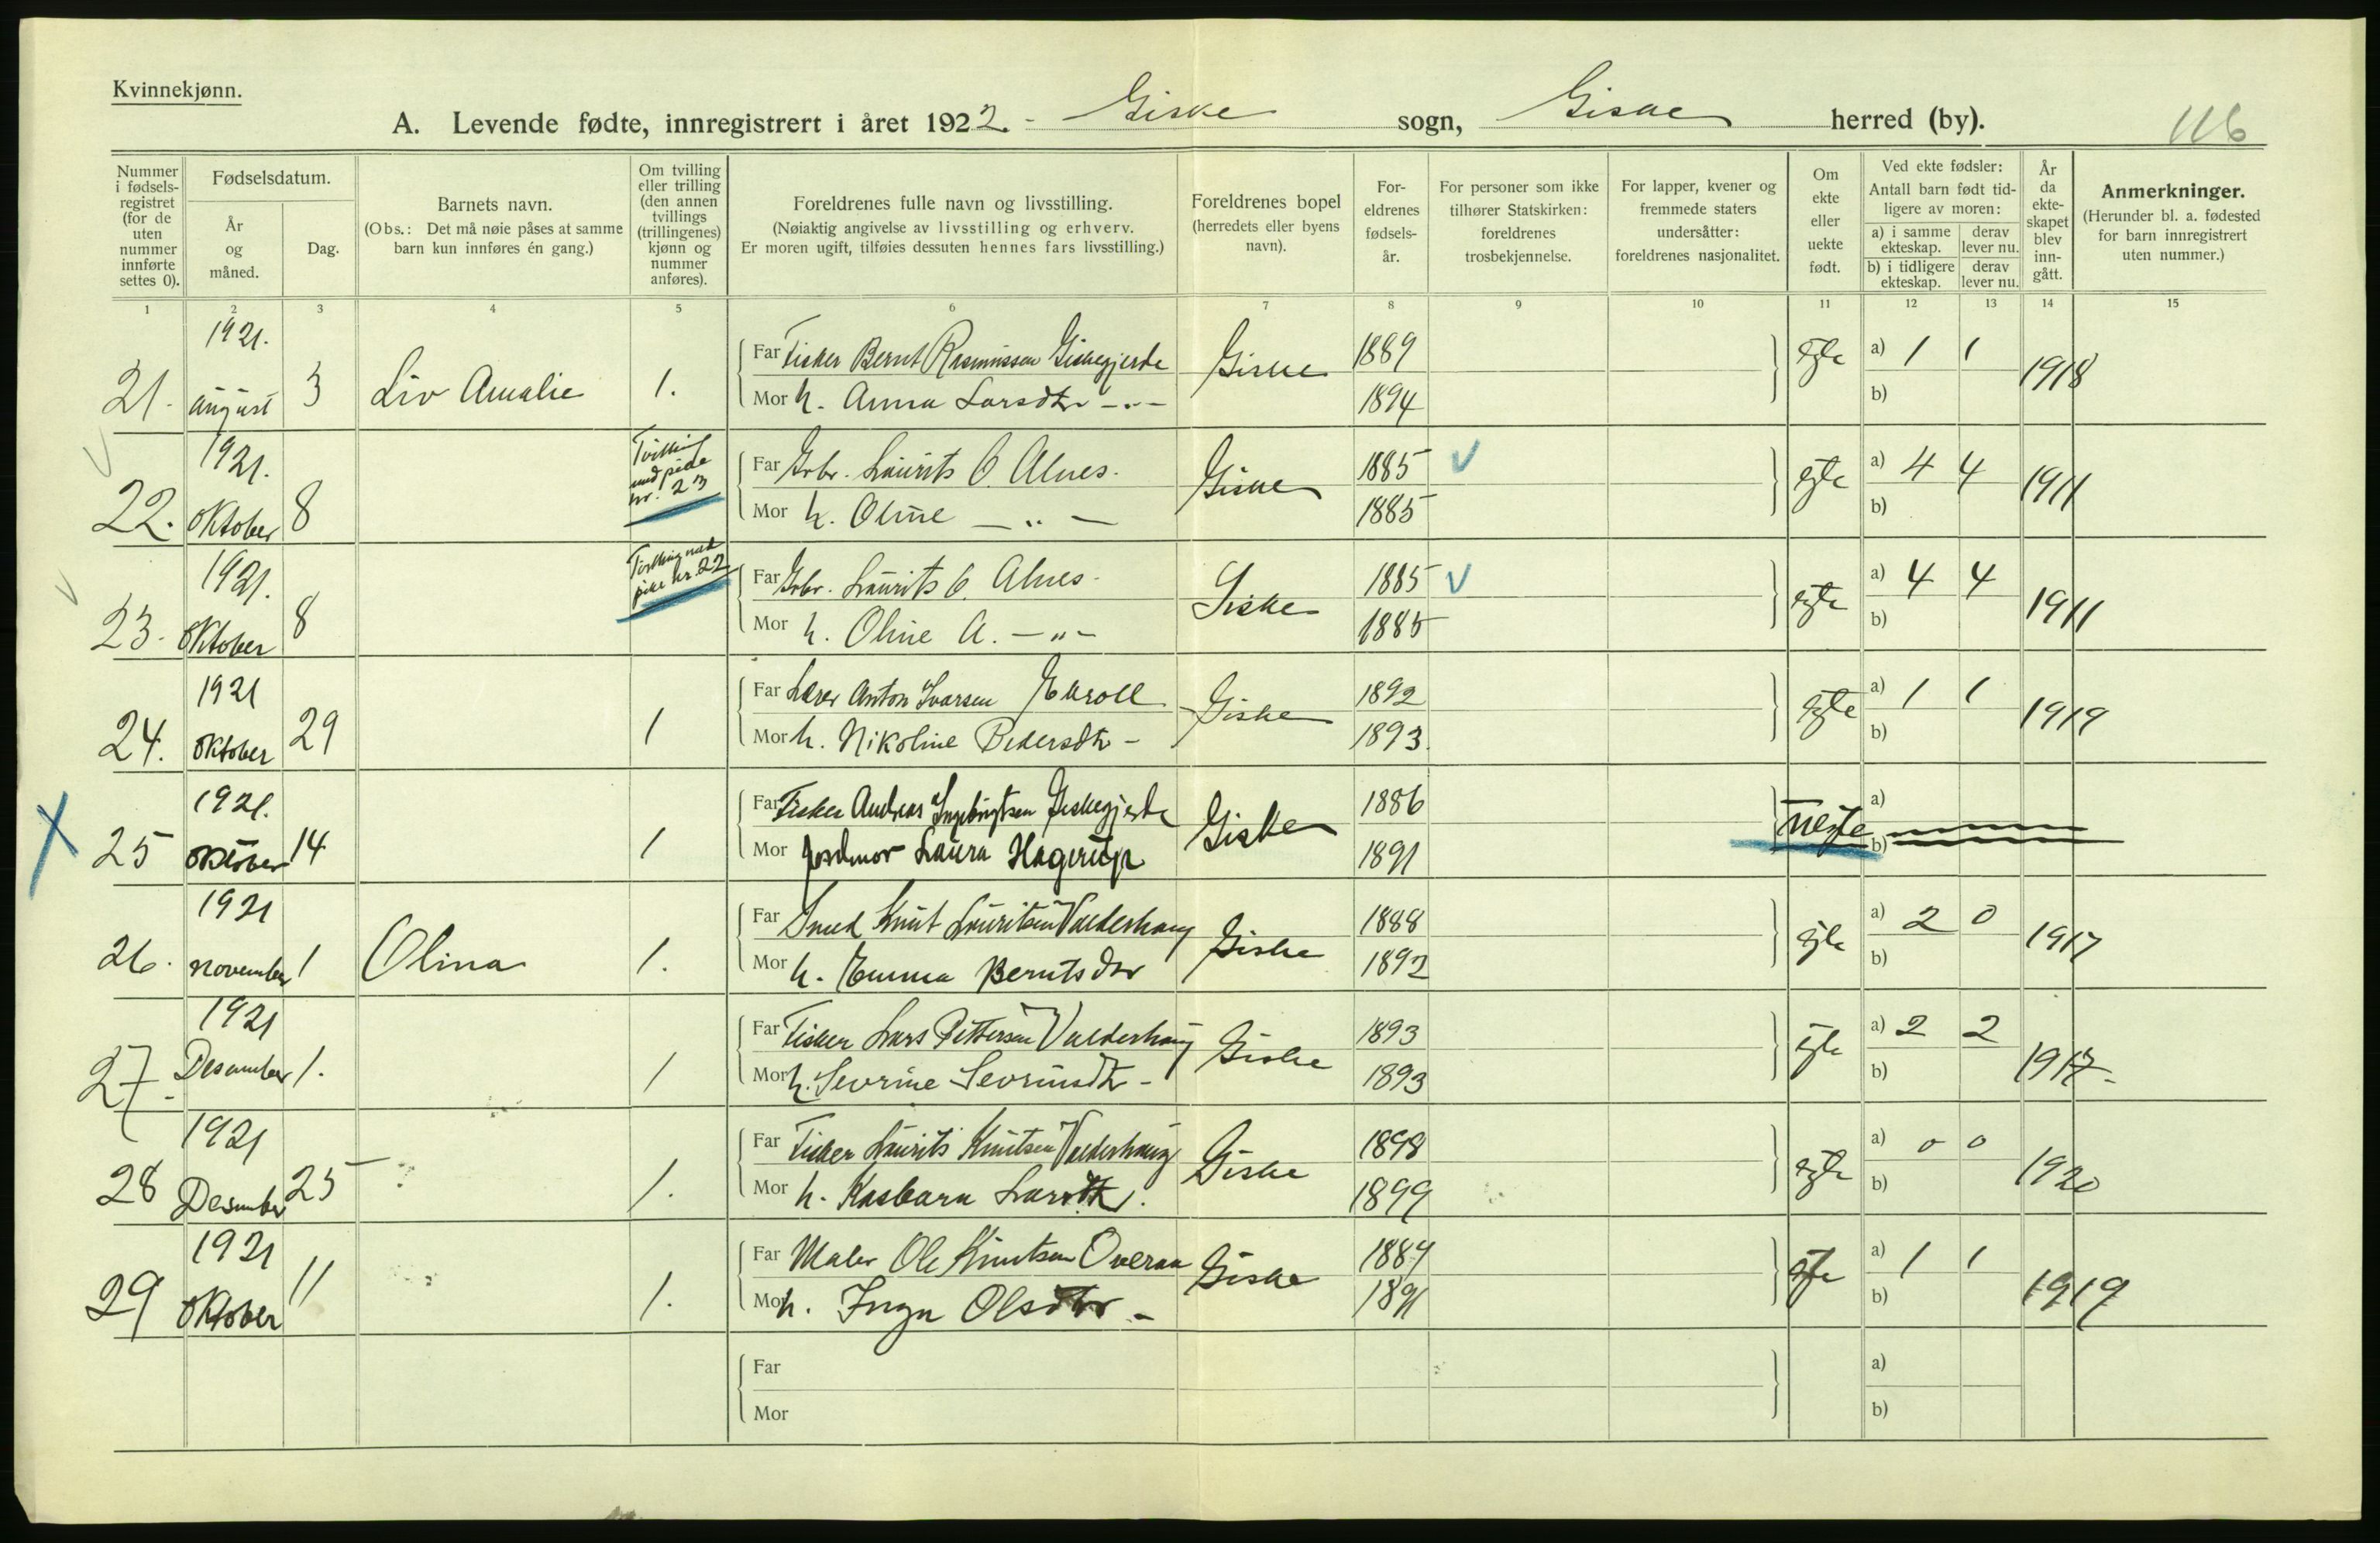 Kvinnekjønn.
A. Levende fødte, innregistrert i året 1922. - Giske sogn, Giske herred (by). 116
Nummer i fødsels-registret (for de uten nummer innførte settes 0).
Fødselsdatum.
År og måned.
Dag.
Barnets navn.
(Obs.: Det må nøie påses at samme barn kun innføres én gang.)
Om tvilling eller trilling (den annen tvillings (trillingenes) kjønn og nummer anføres).
Foreldrenes fulle navn og livsstilling.
(Nøiaktig angivelse av livsstilling og erhverv.
Er moren ugift, tilføies dessuten hennes fars livsstilling.)
Foreldrenes bopel (herredets eller byens navn).
For-eldrenes fødsels-år.
For personer som ikke tilhører Statskirken: foreldrenes trosbekjennelse.
For lapper, kvener og fremmede staters undersåtter: foreldrenes nasjonalitet.
Om ekte eller uekte født.
Ved ekte fødsler:
Antall barn født tid-ligere av moren:
a) i samme ekteskap.
derav lever nu.
b) i tidligere ekteskap.
derav lever nu.
År da ekte-skapet blev inn-gått.
Anmerkninger.
(Herunder bl. a. fødested for barn innregistrert uten nummer.)
1 2 3 4 5 6 7 8 9 10 11 12 13 14 15
21. 1921. august 3 Liv Amalie 1. Far Fisker Bernt Rasmussen Giskegjerde Giske 1889 egte a) 1 1 1918
Mor h. Anna Larsdtr -"- 1894 b)
22. 1921. oktober 8 Tvilling med pike nr. 23 Far Grbr. Laurits O. Alnes. Giske 1885 V egte a) 4 4 1911
Mor h. Oline -"- 1885 b)
23. 1921. oktober 8 Tvilling med pike nr. 22 Far Grbr. Laurits O. Alnes. Giske 1885 V egte a) 4 4 1911
Mor h. Oline A. -"- 1885 b)
24. 1921 oktober 29 1 Far Lærer Anton Ivarsen Ekroll Giske 1892 egte a) 1 1 1919
Mor h. Nikoline Pedersdtr - 1893. b)
25 1921. oktober 14 1 Far Fisker Andreas Ingebrigtsen Giskegjerde Giske 1886 uegte a)
Mor Jordmor Laura Hagerup 1891 b)
26. 1921 november 1 Olina 1. Far Smed Knut Lauritsen Valderhaug Giske 1888 egte a) 2 0 1917
Mor h. Emma Berntsdtr 1892 b)
27. 1921 Desember 1. 1 Far Fisker Lars Pettersen Valderhaug Giske 1893 egte a) 2 2 1917.
Mor h. Sevrine Sevrinsdtr - 1893 b)
28 1921 Desember 25 1. Far Fisker Laurits Knutsen Valderhaug Giske 1898 egte a) 0 0 1920
Mor h. Kasbara Larsdtr. 1899 b)
29 1921 oktober 11 1. Far Maler Ole Knutsen Overaa Giske 1889 egte a) 1 1 1919
Mor h. Inga Olsdtr - 1891 b)
Far a)
Mor b)